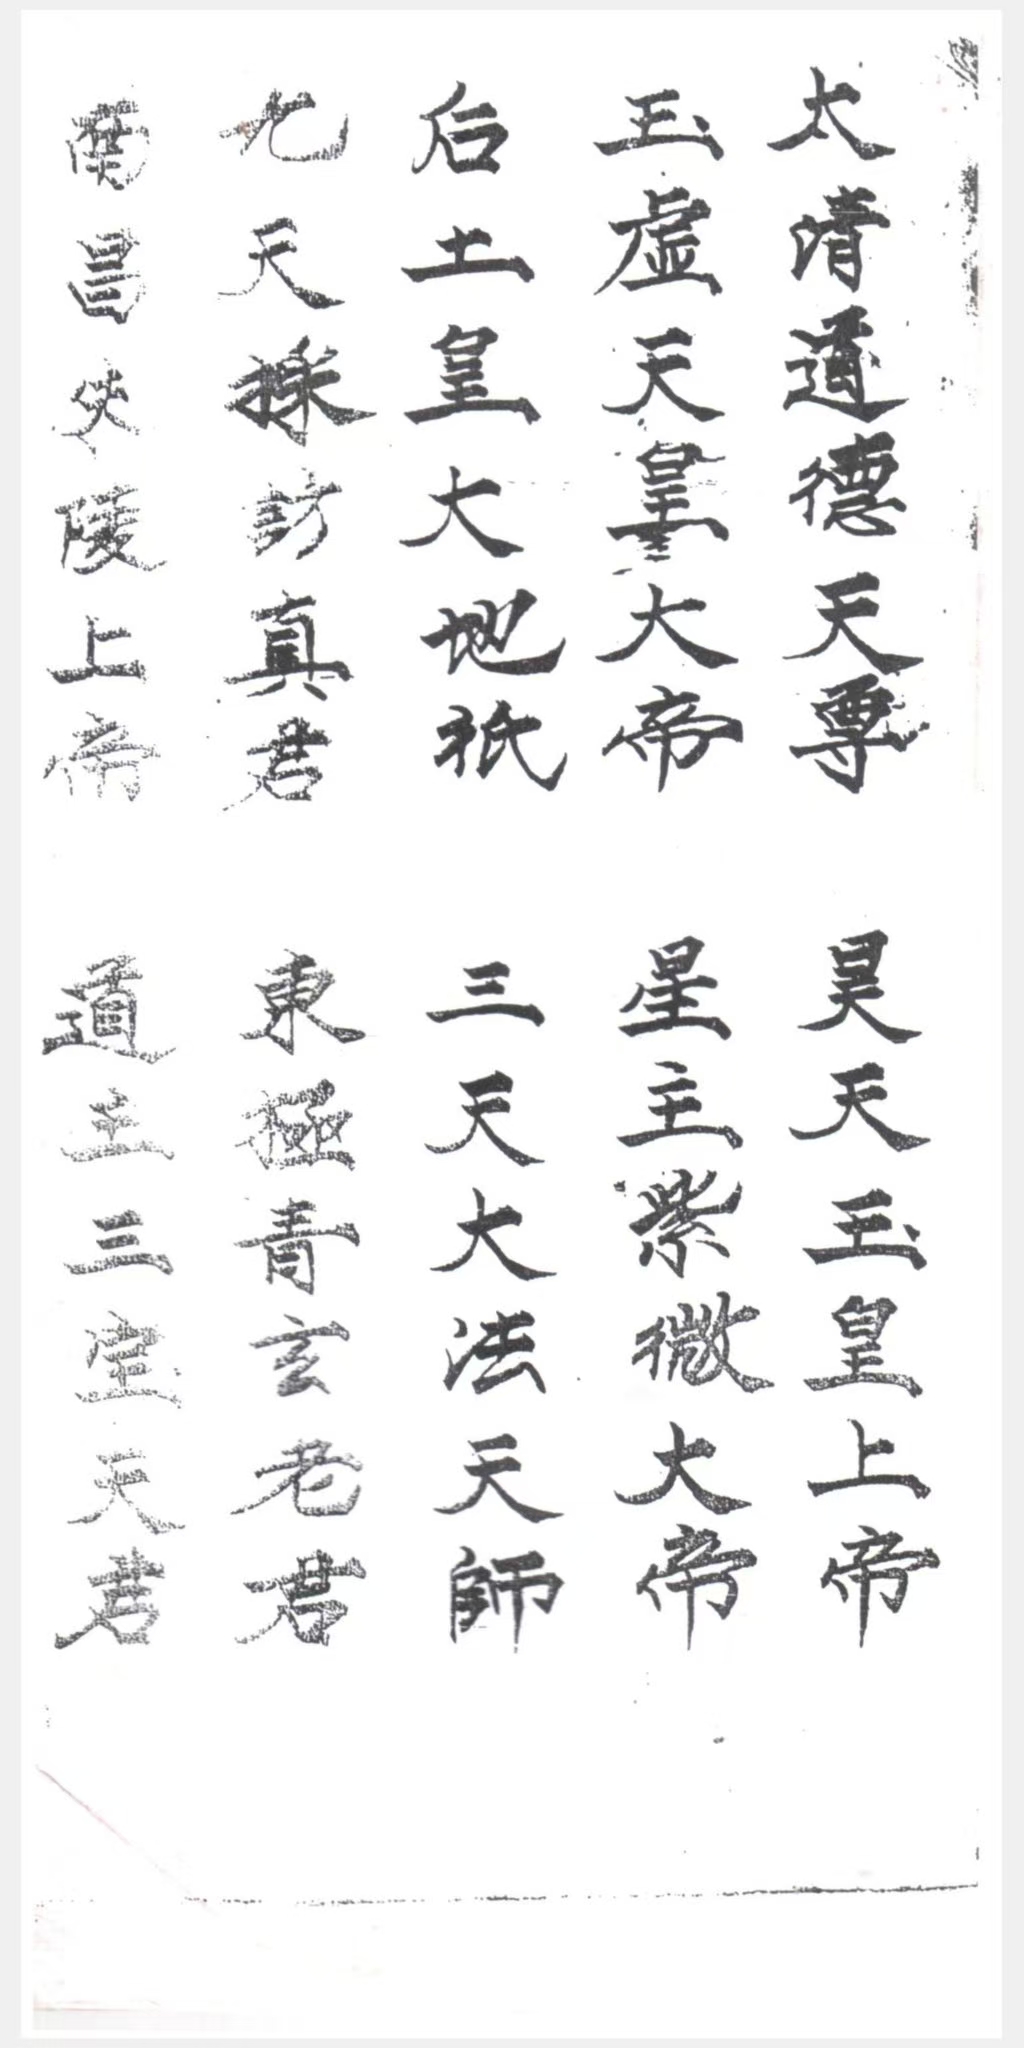 太清道德天尊
昊天玉皇上帝
玉虛天皇大帝
星主紫微大帝
后土皇大地祇
三天大法天師
九天採訪真君
東極青玄老君
南昌火陵上帝
道主三宝天君